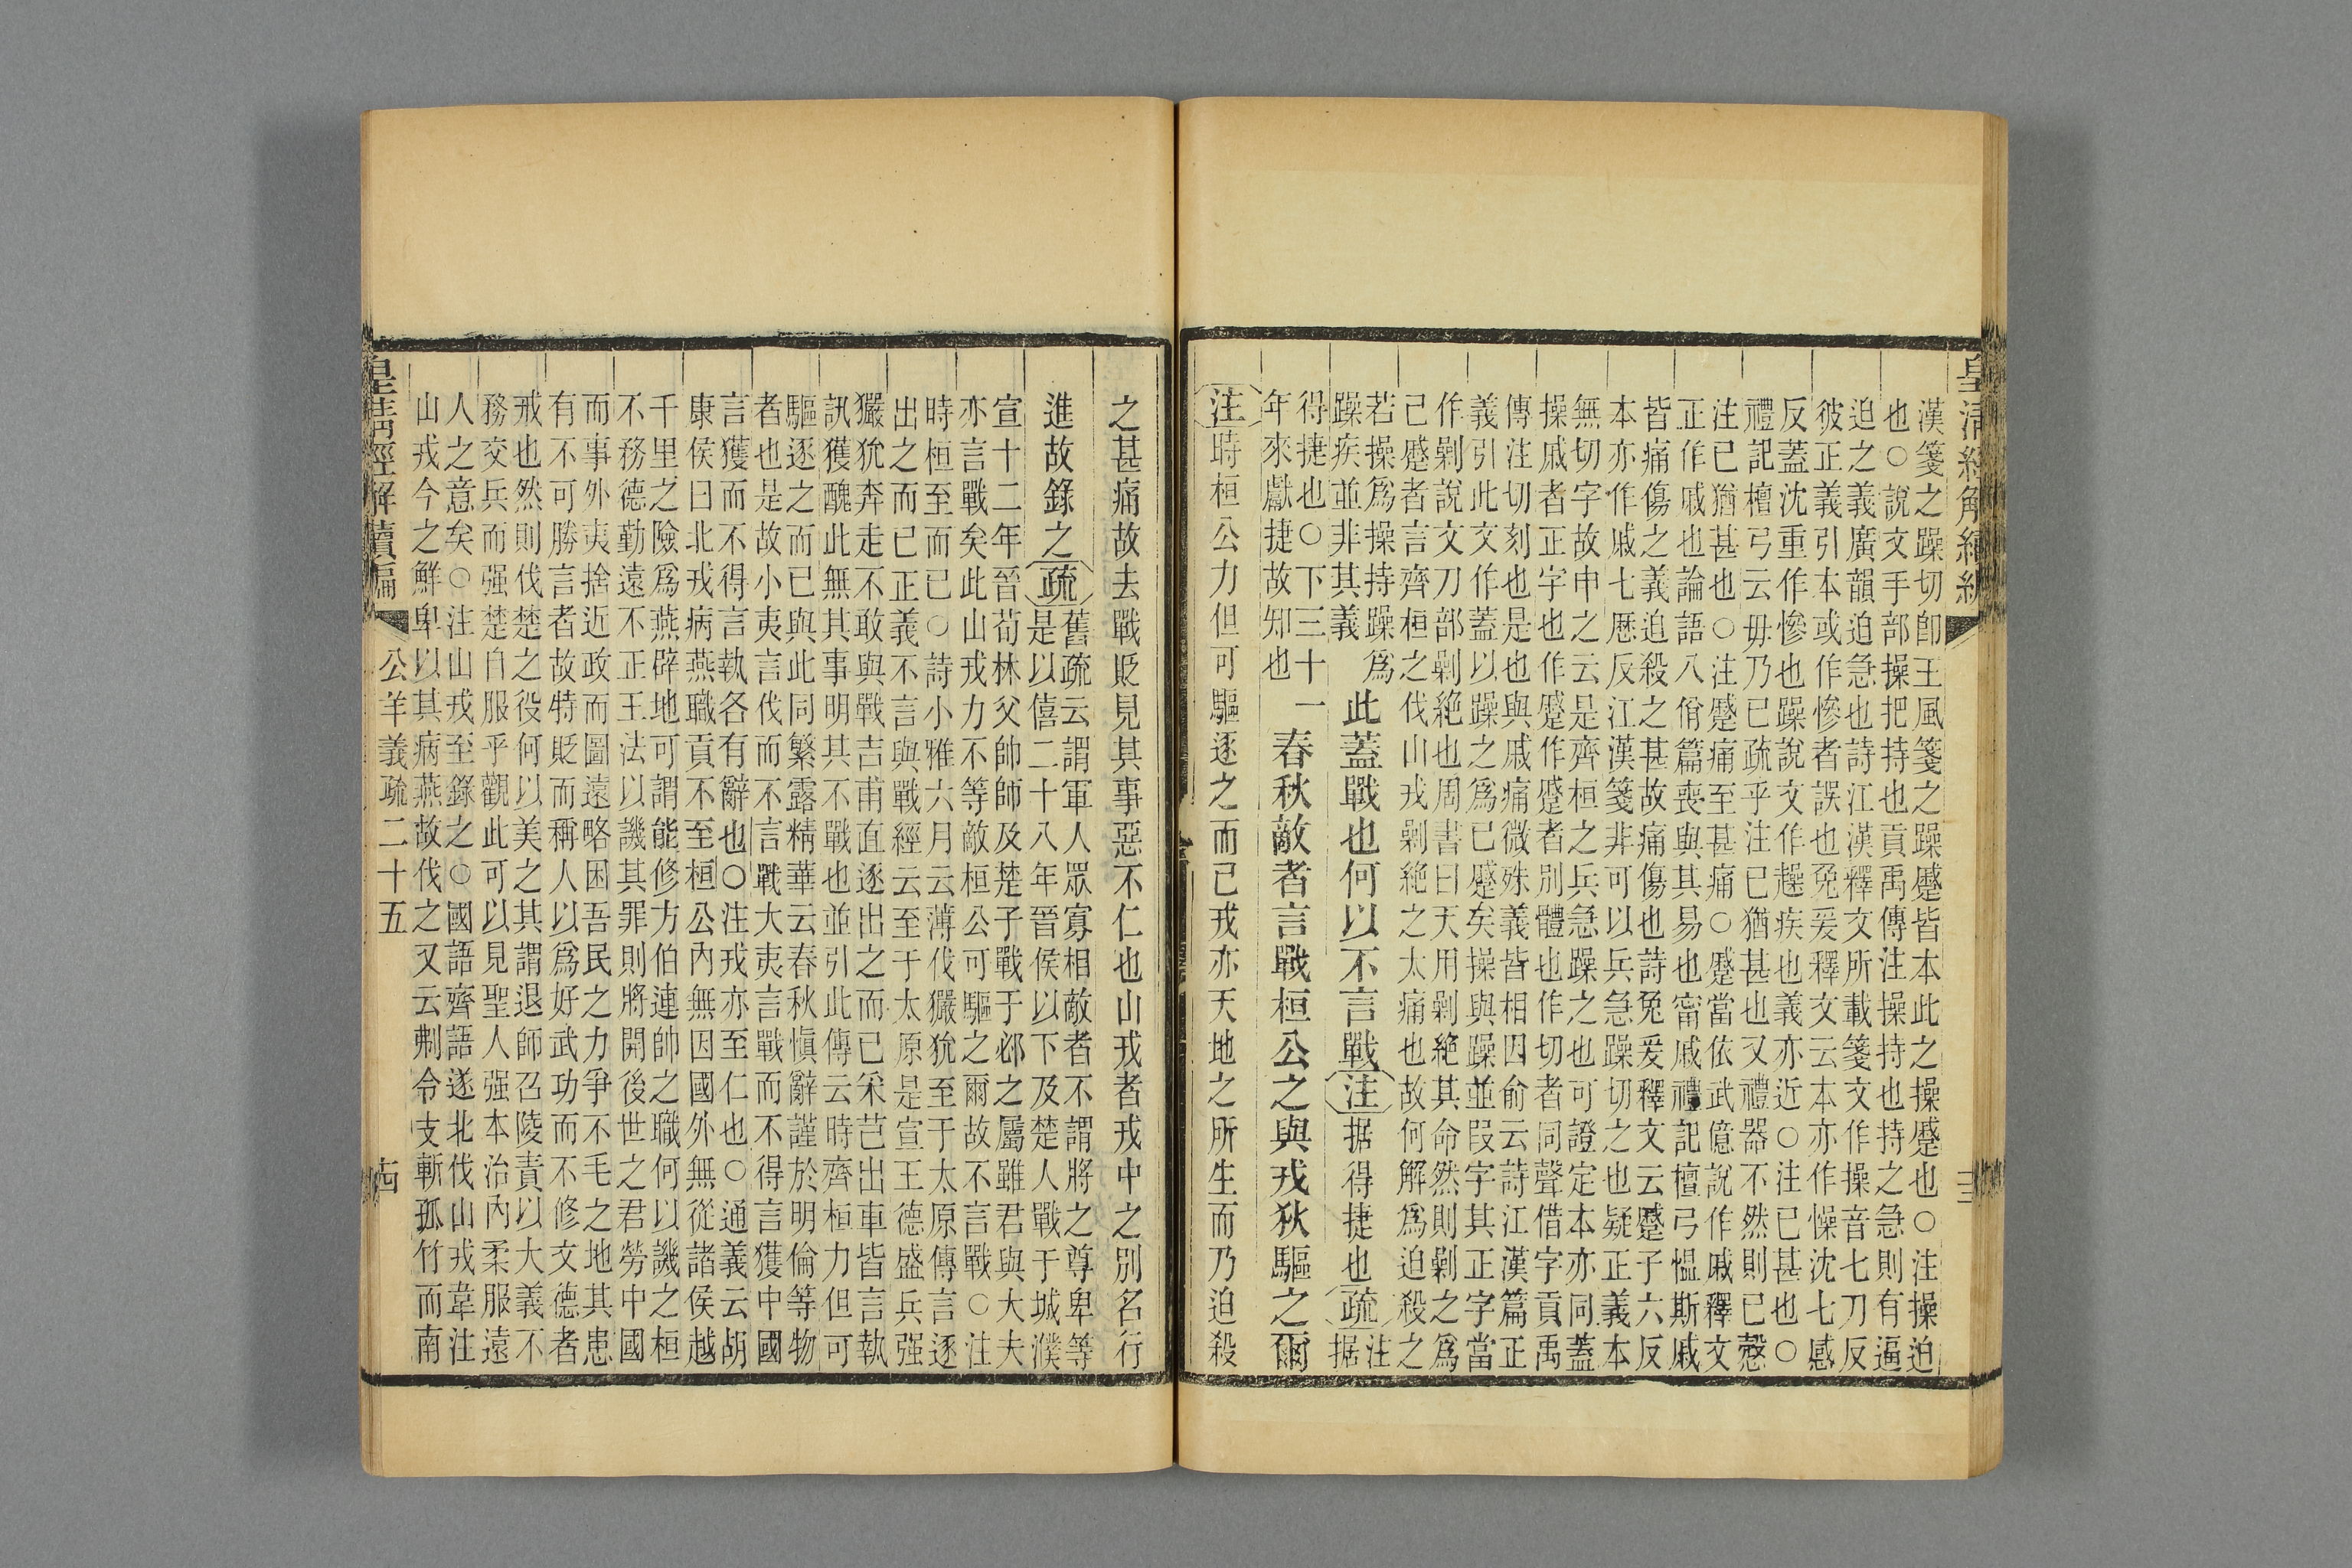 皇清經解續編
漢箋之躁切卽王風箋之躁蹙皆本此之操蹙也○注操迫
也○說文手部操把持也貢禹傳注操持也持之急則有逼
迫之義廣韻迫急也詩江漢釋文所載箋文作操音七刀反
彼正義引本或作慘者誤也兔爰釋文云本亦作懆沈七感
反蓋沈重作慘也躁說文作趮疾也義亦近○注已甚也○
禮記檀弓云毋乃已疏乎注已猶甚也又禮器不然則已慤
注已猶甚也○注蹙痛至甚痛○蹙當依武億說作戚釋文
正作戚也論語八佾篇喪與其易也甯戚禮記檀弓慍斯戚
皆痛傷之義迫殺之甚故痛傷也詩兔爰釋文云蹙子六反
本亦作戚七歷反江漢箋非可以兵急躁切之也疑正義本
無切字故申之云是齊桓之兵急躁之也可證定本亦同蓋
操戚者正字也作蹙作蹙者別體也作切者同聲借字貢禹
傳注切刻也是也與戚痛微殊義皆相因俞云詩江漢篇正
義引此文作蓋以躁之爲已蹙矣操與躁並叚字其正字當
作剿說文刀部剿絶也周書曰天用剿絶其命然則剿之爲
己蹙者言齊桓之伐山戎剿絶之太痛也故何解爲迫殺之
若操爲操持躁爲
躁疾並非其義
此蓋戰也何以不言戰注据得捷也疏
注据
得捷也○下三十一
年來獻捷故知也
春秋敵者言戰桓公之與戎狄驅之爾
注時桓公力但可驅逐之而已戎亦天地之所生而乃迫殺
之甚痛故去戰貶見其事惡不仁也山戎者戎中之別名行
進故錄之疏
舊疏云謂軍人眾寡相敵者不謂將之尊卑等
是以僖二十八年晉侯以下及楚人戰于城濮
宣十二年晉荀林父帥師及楚子戰于邲之屬雖君與大夫
亦言戰矣此山戎力不等敵桓公可驅之爾故不言戰○注
時桓至而已○詩小雅六月云薄伐玁狁至于太原傳言逐
出之而已正義不言與戰經云至于太原是宣王德盛兵强
玁狁奔走不敢與戰吉甫直逐出之而已采芑出車皆言執
訊獲醜此無其事明其不戰也並引此傳云時齊桓力但可
驅逐之而已與此同繁露精華云春秋愼辭謹於明倫等物
者也是故小夷言伐而不言戰大夷言戰而不得言獲中國
言獲而不得言執各有辭也○注戎亦至仁也○通義云胡
康侯曰北戎病燕職貢不至桓公內無因國外無從諸侯越
千里之險爲燕辟地可謂能修方伯連帥之職何以譏之桓
不務德勤遠不正王法以譏其罪則將開後世之君勞中國
而事外夷捨近政而圖遠略困吾民之力爭不毛之地其患
有不可勝言者故特貶而稱人以爲好武功而不修文德者
戒也然則伐楚之役何以美之其謂退師召陵責以大義不
務交兵而强楚自服乎觀此可以見聖人强本治內柔服遠
人之意矣○注山戎至錄之○國語齊語遂北伐山戎韋注
山戎今之鮮卑以其病燕故伐之又云刜令支斬孤竹而南
皇清經解續編
公羊義疏二十五